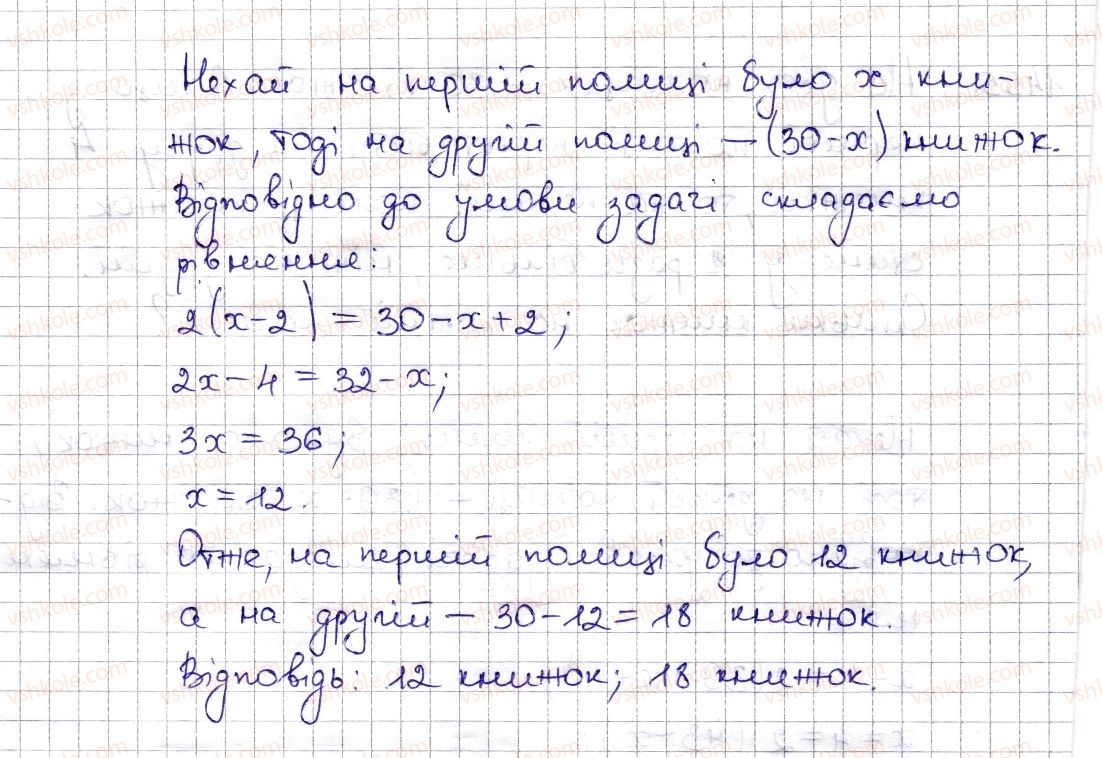 Нехай на першій полиці було x кни-
жок, тоді на другій полиці — (30-x) книжок.
Відповідно до умови задачі складаємо
рівняння:
2(x-2) = 30-x+2;
2x-4 = 32-x;
3x = 36;
x = 12.
Отже, на першій полиці було 12 книжок,
а на другій — 30-12 = 18 книжок.
Відповідь: 12 книжок; 18 книжок.